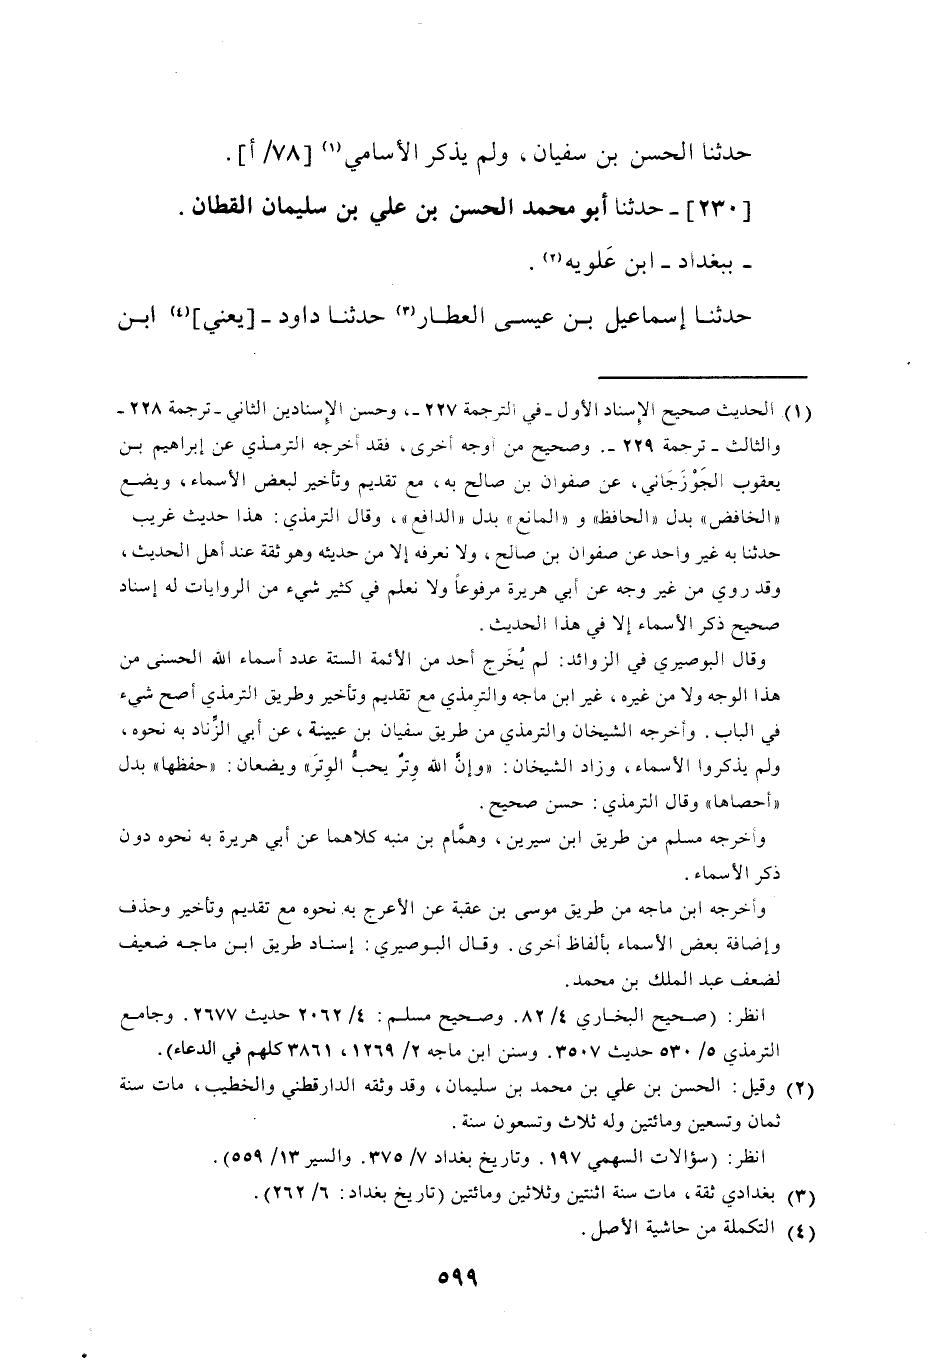 حدثنا الحسن بن سفيان ، ولم يذكر الأسامي(١) [٧٨/ أ] .
[٢٣٠] ـ حدثنا أبو محمد الحسن بن علي بن سليمان القطان .
ـ ببغداد ـ ابن عَلويه(٢) .
حدثنـا إسماعيل بـن عيسـى العطـار(٣) حدثنـا داود ـ [يعني](٤) ابـن
(١) الحديث صحيح الإسناد الأول ـ في الترجمة ٢٢٧ ـ، وحسن الإسنادين الثاني ـ ترجمة ٢٢٨ ـ
والثالث ـ ترجمة ٢٢٩ ـ. وصحيح من أوجه أخرى، فقد أخرجه الترمـذي عن إبراهيم بـن
يعقوب الجَوْزَجَاني، عن صفوان بن صالح به، مع تقديم وتأخير لبعض الأسماء، ويضـع
«الخافض» بدل «الحافظ» و «المانع» بدل «الدافع»، وقال الترمذي: هذا حديث غريب
حدثنا به غير واحد عن صفوان بن صالح، ولا نعرفه إلا من حديثه وهو ثقة عند أهل الحديث،
وقد روي من غير وجه عن أبي هريرة مرفوعاً ولا نعلم في كثير شيء من الروايات له إسناد
صحيح ذكر الأسماء إلا في هذا الحديث .
وقال البوصيري في الزوائد: لم يُخَرج أحد من الأئمة الستة عدد أسماء الله الحسنى من
هذا الوجه ولا من غيره، غير ابن ماجه والترمذي مع تقديم وتأخير وطريق الترمذي أصح شيء
في الباب . وأخرجه الشيخان والترمذي من طريق سفيان بن عيينة، عن أبي الزِّناد به نحوه،
ولم يذكروا الأسماء، وزاد الشيخان: «وإنَّ الله وِترٌ يحبُّ الوِترَ» ويضعان: «حفظها» بدل
«أحصاها» وقال الترمذي: حسن صحيح .
وأخرجه مسلم من طريق ابن سيرين، وهمَّام بن منبه كلاهما عن أبي هريرة به نحوه دون
ذكر الأسماء .
وأخرجه ابن ماجه من طريق موسى بن عقبة عن الأعرج به نحوه مع تقديم وتأخير وحذف
وإضافة بعض الأسماء بألفاظ أخرى . وقـال البـوصيري: إسنـاد طريق ابـن ماجـه ضعيف
لضعف عبد الملك بن محمد.
انظر: (صـحيح البخـاري ٤/ ٨٢. وصـحيح مسلـم: ٤/ ٢٠٦٢ حديث ٢٦٧٧ . وجامـع
الترمذي ٥/ ٥٣٠ حديث ٣٥٠٧. وسنن ابن ماجه ٢/ ١٢٦٩، ٣٨٦١ كلهم في الدعاء).
(٢) وقيل: الحسن بن علي بن محمد بن سليمان، وقد وثقه الدارقطني والخطيب، مات سنة
ثمان وتسعين ومائتين وله ثلاث وتسعون سنة .
انظر: (سؤالات السهمي ١٩٧ . وتاريخ بغداد ٧/ ٣٧٥. والسير ١٣/ ٥٥٩).
(٣) بغدادي ثقة، مات سنة اثنتين وثلاثين ومائتين (تاريخ بغداد: ٦/ ٢٦٢).
(٤) التكملة من حاشية الأصل .
٥٩٩